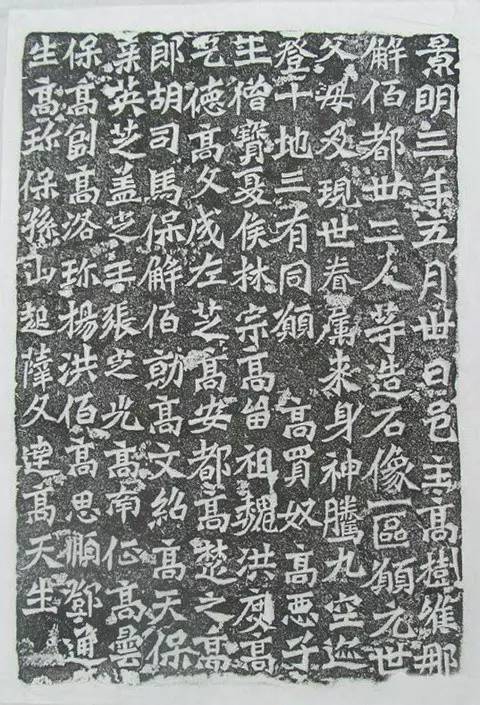 景明三年五月卅日邑主高樹維那
解佰都卅二人等造石像一區願元世
父母及現世眷属來身神騰九空迹
登十地三有同願高買奴高惡子
王僧寳夏侯林宗高留祖魏洪度高
乞德高文成左芝高安都高楚之高
郎胡司馬保解佰勍高文紹高天保
英芝盖芝王張芝光高南征高曇
保高創高洛珎楊洪佰高思順鄧通
生高珎保孫山起薛文達高天生